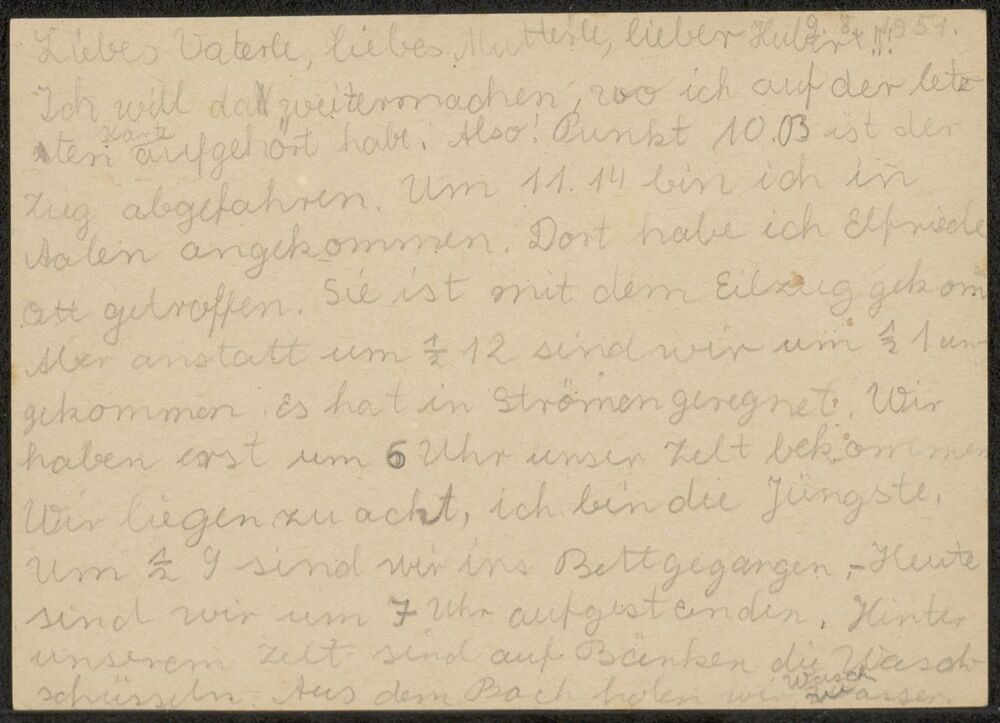 9. 8. 1951.
Liebes Vaterle, liebes Mutterle, lieber Hubert!!!
Ich will da weitermachen, wo ich auf der letz-
ten Karte aufgehört habe. Also! Punkt 10.03 ist der
Zug abgefahren. Um 11.14 bin ich in
Aalen angekommen. Dort habe ich Elfriede
Ott getroffen. Sie ist mit dem Eilzug gekom
Aber anstatt um ½ 12 sind wir um ½ 1 an
gekommen. Es hat in Strömen geregnet. Wir
haben erst um 6 Uhr unser Zelt bekommen
Wir liegen zu acht, ich bin die Jüngste.
Um ½ 9 sind wir ins Bett gegangen. - Heute
sind wir um 7 Uhr aufgestanden. Hinter
unserem Zelt sind auf Bänken die Wasch
schüsseln. Aus dem Bach holen wir Wasch
wasser